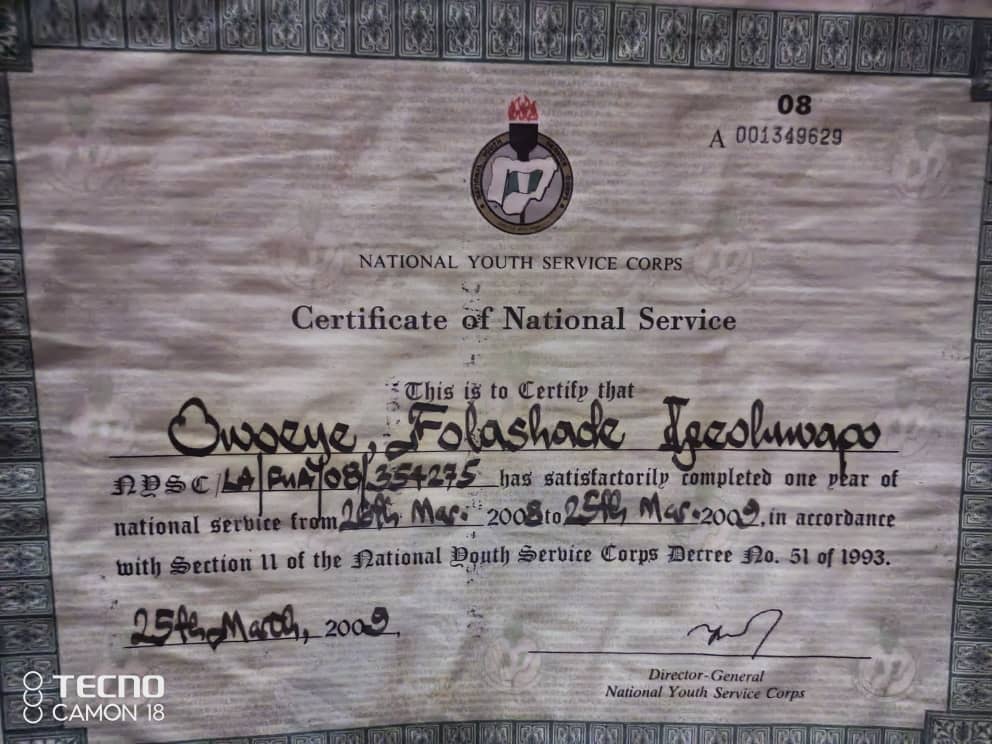 08
A 001349629
NATIONAL YOUTH SERVICE CORPS
Certificate of National Service
This is to Certify that
Owoeye, Folashade Ifeoluwapo
NYSC/LA/PHA/08/354275 has satisfactorily completed one year of
national service from 26th Mar. 2008 to 25th Mar. 2009, in accordance
with Section 11 of the National Youth Service Corps Decree No. 51 of 1993.
25th March, 2009.
Director-General
National Youth Service Corps
TECNO
CAMON 18